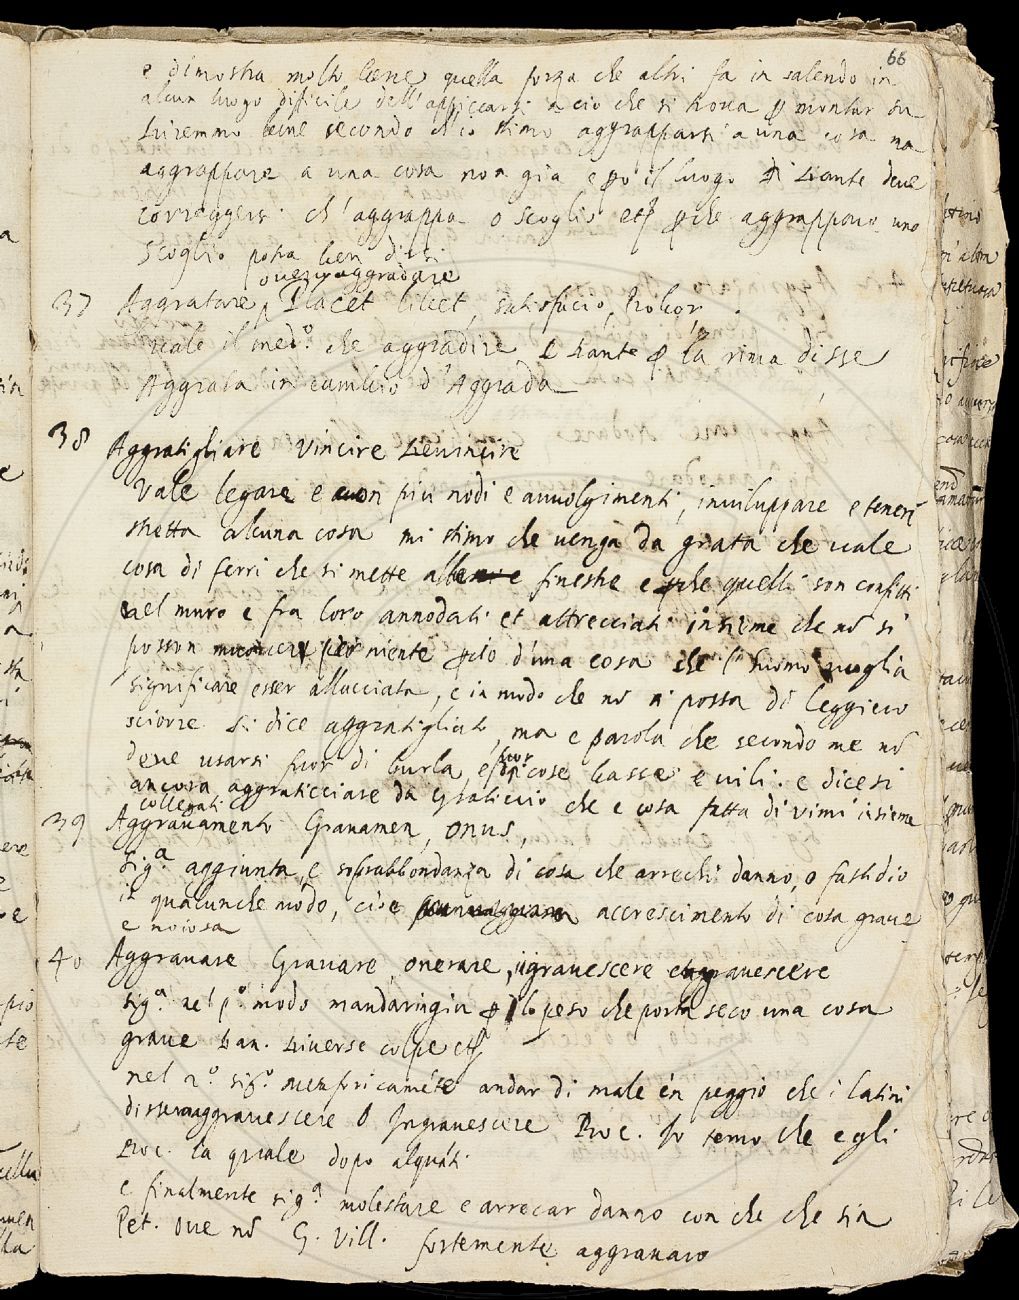 66
e dimostra molto bene quella forza che altri fa in salendo in
alcun luogo dificile dell'appiccarsi a ciò che si troua p montar su
Diremmo bene secondo ch'io stimo aggrapparsi a una cosa ma
aggrappare a una cosa non gia e pò il luogo di Dante deue
correggersi ch'aggrappa o scoglio etc pche aggrappare uno
scoglio potra ben dirsi
ouero aggradare
37 Aggratare Placet libet, satisfacio,
uale il medo. che aggradire e Dante p la rima disse
Aggrata in cambio d'Aggrada
38 Aggratigliare Vincire Deuincire
Vale legare e con piu nodi e auuolgimenti, inuiluppare e tener
stretta alcuna cosa mi stimo che uenga da grata che uale
cosa di ferri che si mette alle finestre e pche quelli son confitti
nel muro e fra loro annodati et attrecciati insieme che nō si
posson muouere per niente pciò d'una cosa che l'huomo uoglia
significare esser allacciata, e in modo che nō si possa di leggiero
sciorre si dice aggratigliato, ma e parola che secondo me nō
deue usarsi fuor di burla, e fuor di cose basse e uili. e dicesi
ancora aggraticciare da graticcio che e cosa fatta di vimi insieme
collegati
39 Aggrauamento Grauamen, onus,
siga. aggiunta, e soprabbondanza di cosa che arrechi danno, o fastidio
in qualunche modo, cioè accrescimento di cosa graue
e noiosa
40 Aggrauare Grauare, onerare, ingrauescere
siga. nel po. modo mandaringia p lo peso che porta seco una cosa
graue Dan. Diuerse colpe etc
nel 2o. sigo. metaforicamēte andar di male in peggio che i latini
disseno aggrauescere o Ingrauescere Boc. Io temo che egli
Boc. la quale dopo alquāti
e finalmente siga. molestare e arrecar danno con che che sia
Pet. oue nō G. Vill. fortemente aggrauaro